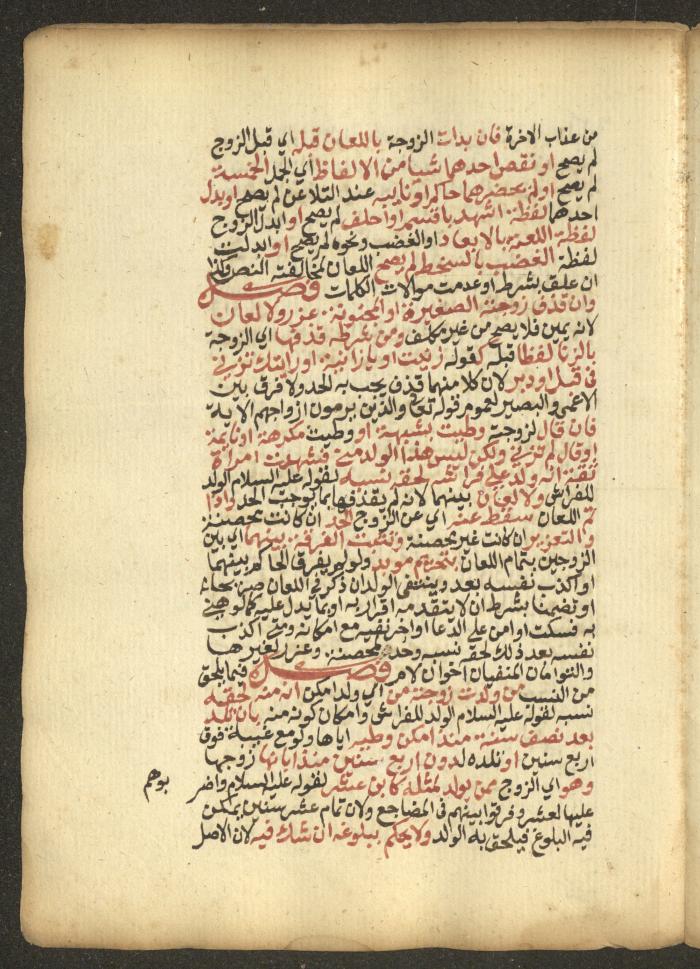 من عذاب الاخرة فان بدات الزوجة باللعان قبله اي قبل الزوج
لم يصح او نقص احدهما شيا من الالفاظ اي الجمل الخمسة
لم يصح او لم يحضرهما حاكم او نايبه عند التلاعن لم يصح او بدل
احدهما لفظة اشهد باقسم او احلف لم يصح او ابدل الزوج
لفظة اللعنة بالابعاد او الغضب ونحوه لم يصح او ابدلت
لفظة الغضب بالسخط لم يصح اللعان لمخالفته النص وكذا
ان علق بشرط او عدمت موالات الكلمات فصل
وان قذف زوجته الصغيرة او المجنونة عزر ولا لعان
لانه يمين فلا يصح من غير مكلف ومن شرطه قذفها اي الزوجة
بالزنا لفظا قبله كقوله زنيت او يا زانية او رايتك تزني
في قبل او دبر لان كلا منهما قذف يجب به الحد ولا فرق بين
الاعمى والبصير لعموم قوله تعالى والذين يرمون ازواجهم الاية
فان قال لزوجته وطيت بشبهة او وطيت مكرهة او نايمة
او قال لم تزني ولكن ليس هذا الولد مني فشهدت امراة
ثقة انه ولد على فراشه لحقه نسبه لقوله عليه السلام الولد
للفراش ولا لعان بينهما لانه لم يقذفها بما يوجب الحد واذا
تم اللعان سقط عنه اي عن الزوج الحد ان كانت محصنة
والتعزير ان كانت غير محصنة وتثبت الفرقة بينهما اي بين
الزوجين بتمام اللعان بتحريم موبد ولو لم يفرق الحاكم بينهما
او اكذب نفسه بعد وينتفي الولد ان ذكر في اللعان صريحا
او تضمنا بشرط ان لا يتقدمه اقرار به او بما يدل عليه كما لو هني
به فسكت او امن على الدعا او اخر نفيه مع امكانه ومتى اكذب
نفسه بعد ذلك لحقه نسبه وحد لمحصنة وعزر لغيرها
والتوامان المنفيان اخوان لام فصل فيما يلحق
من النسب من ولدت زوجته من اي ولدا مكن انه منه لحقه
نسبه لقوله عليه السلام الولد للفراش وامكان كونه منه بان تلد
بعد نصف سنة منذ امكن وطيه اياها ولو مع غيبة فوق
اربع سنين او تلده لدون اربع سنين منذ ابانها زوجها
وهو اي الزوج ممن يولد لمثله كابن عشر لقوله عليه السلام واضر
بوهم
عليها لعشر وفرقوا بينهم في المضاجع ولان تمام عشر سنين يمكن
فيه البلوغ فيلحق به الولد ولا يحكم ببلوغه ان شك فيه لان الاصل